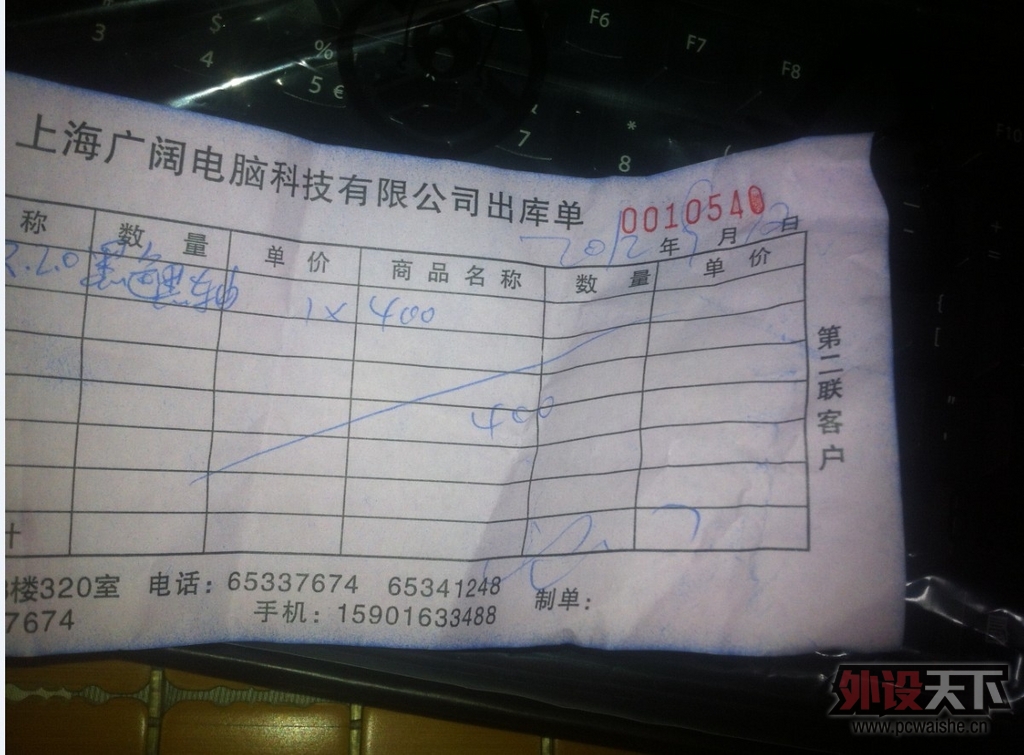 F6
F7
F8
F10
3
$
4
%
5 €
7
*
8
(
上海广阔电脑科技有限公司出库单 0010540
2012年 月 日
称 数量 单价 商品名称 数量 单价
1 × 400
400
第二联客户
楼320室 电话：65337674 65341248 制单：
7674 手机：15901633488
外设天下
www.pcwaishe.cn